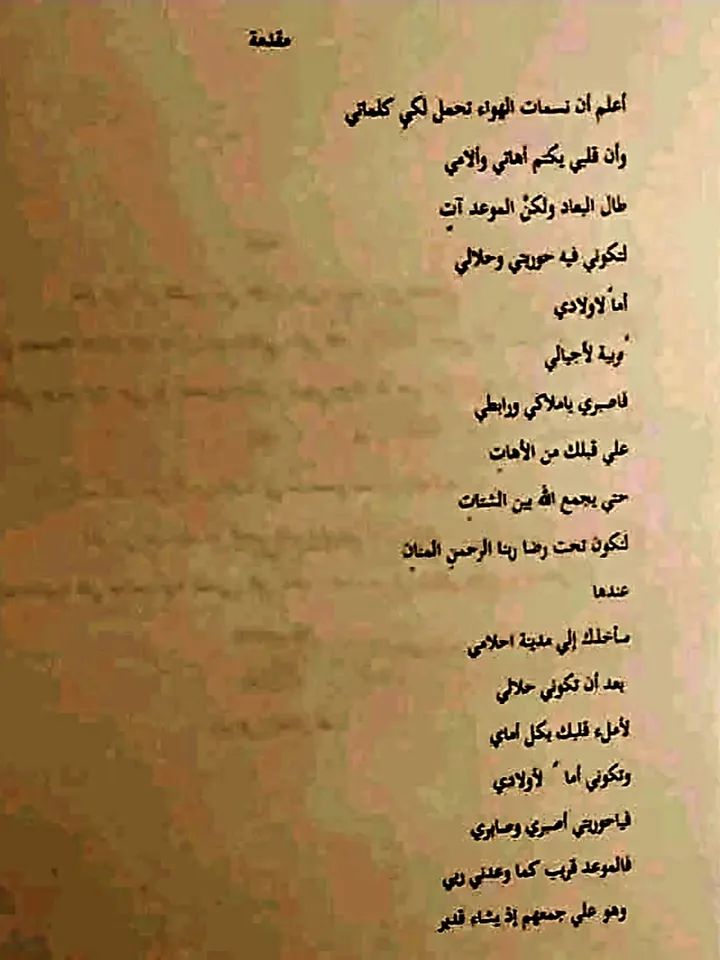 مقدمة
أعلم أن نسمات الهواء تحمل لكي كلماتي
وأن قلبي يكتم أهاتي وألامي
طال البعاد ولكنَّ الموعد آتٍ
لتكوني فيه حوريتي وحلالي
أماً لاولادي
مُربية لأجيالي
فاصبري ياملاكي ورابطي
علي قبلك من الأهات
حتي يجمع الله بين الشتات
لنكون تحت رضا ربنا الرحمن المنان
عندها
سأخذك إلي مدينة احلامي
بعد أن تكوني حلالي
لأملء قلبك بكل أماني
وتكوني أما ً لأولادي
فياحوريتي أصبري وصابري
فالموعد قريب كما وعدني ربي
وهو علي جمعهم إذ يشاء قدير